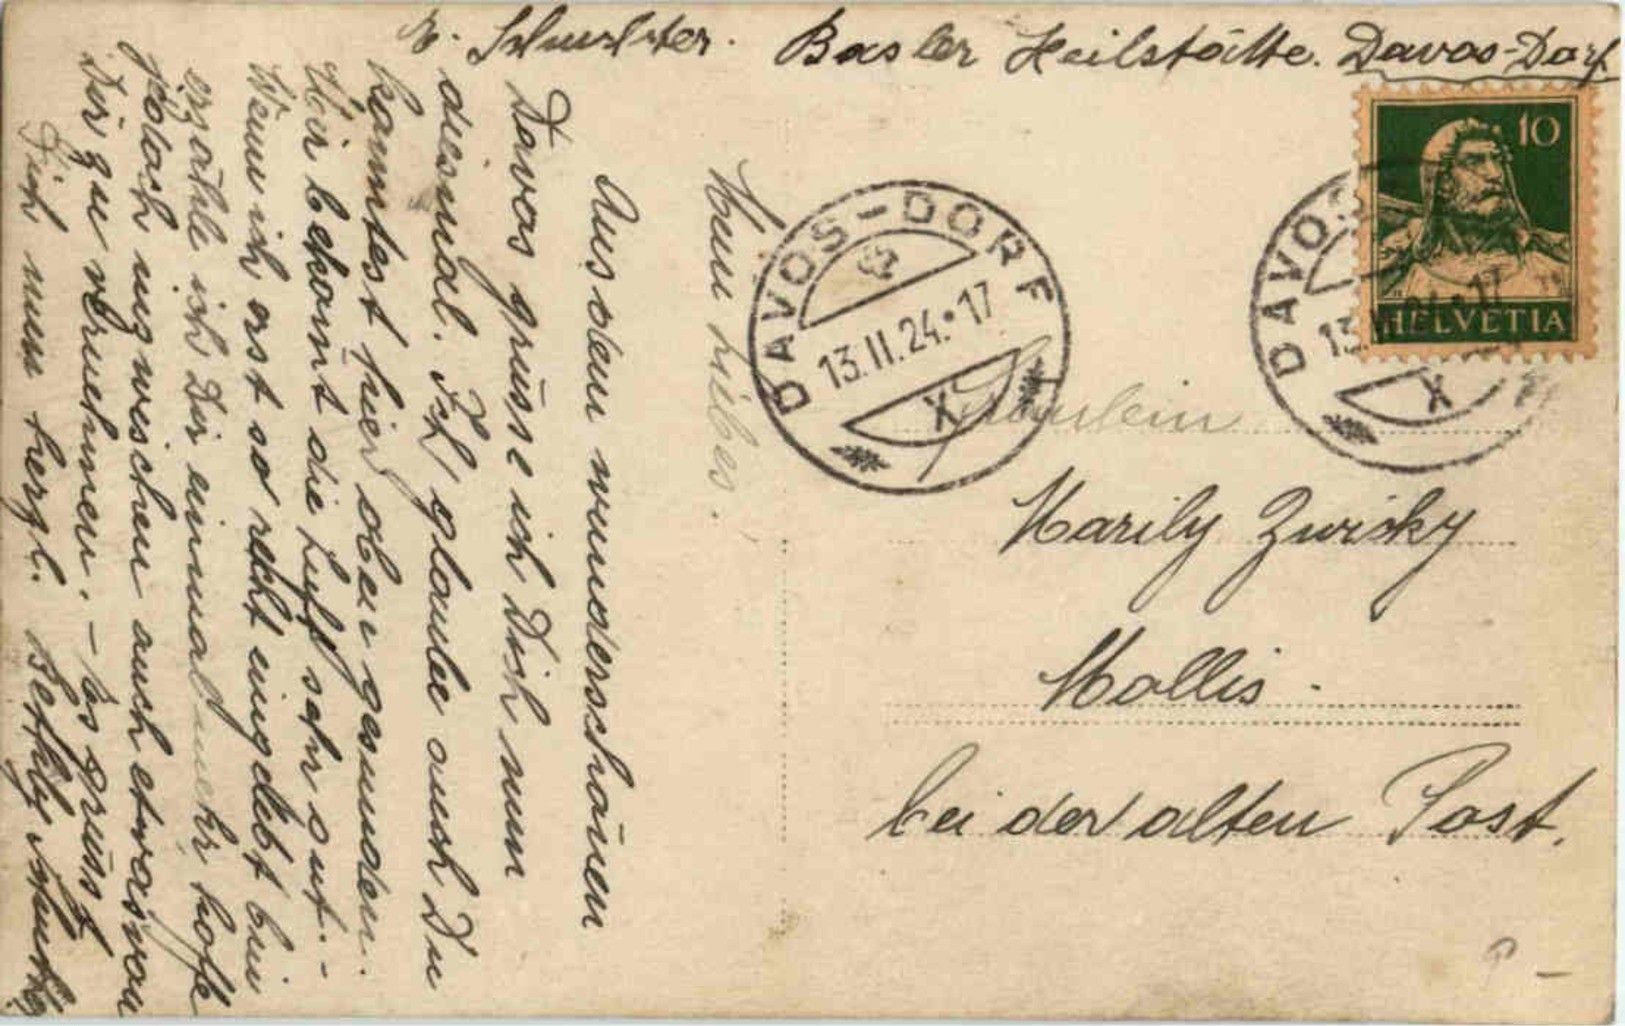 B. Schuster. Basler Heilstätte. Davos-Dorf
Mein liebes.
Aus dem wunderschönen
Davos grüsse ich Dich nun
diesmal. Ich glaube auch Du
kanntest hier oben gesunden.
Mir bekomt die Luft sehr gut. -
Wenn ich erst so recht eingelebt bin
erzähle ich Dir einmal mehr hoffe
jedoch inzwischen auch etwas von
Dir zu vernehmen. - Es grüsst
Dich nun herzl. Bethly
DAVOS-DORF
13.II.24.•17
X
DAVOS
13.II.24.•17
X
10
HELVETIA
Fräulein
Marily Zwicky
Mollis.
bei der alten Post.